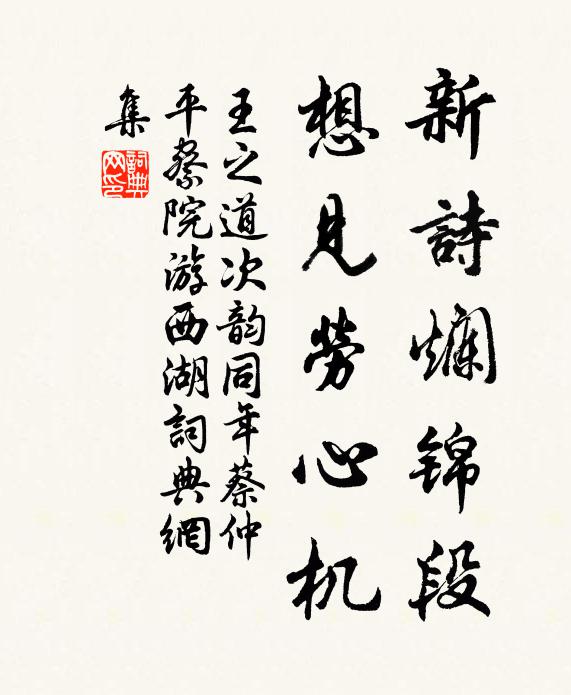 新詩爛锦段
想見勞心机
王之道次韵同年蔡仲
平察院游西湖詞典網
集
詞典网印